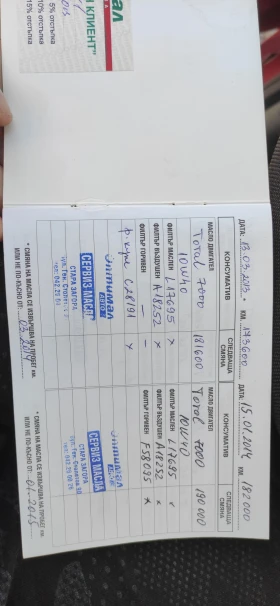 5% отстъпка
10% отстъпка
15% отстъпка
КЛИЕНТ"
ДАТА: 13.03.2013. КМ 173600
КОНСУМАТИВ
СЛЕДВАЩА СМЯНА
МАСЛО ДВИГАТЕЛ
Total 7000
10W40
181600
ФИЛТЪР МАСЛЕН L17695 x
ФИЛТЪР ВЪЗДУШЕН A18252 x
ФИЛТЪР ГОРИВЕН — —
ф. купе C28191 x
Оптимал
СЕРВИЗ МАСЛА
СТАРА ЗАГОРА
* СМЯНА НА МАСЛА СЕ ИЗВЪРШВА НА ПРОБЕГ КМ.
ИЛИ НЕ ПО-КЪСНО ОТ: 03.2014
ДАТА: 15.01.2014 КМ 182000
КОНСУМАТИВ
СЛЕДВАЩА СМЯНА
МАСЛО ДВИГАТЕЛ
Total 7000
10W40
190000
ФИЛТЪР МАСЛЕН L17695
ФИЛТЪР ВЪЗДУШЕН A18252
ФИЛТЪР ГОРИВЕН F58095 x
Оптимал
СЕРВИЗ МАСЛА
СТАРА ЗАГОРА
* СМЯНА НА МАСЛА СЕ ИЗВЪРШВА НА ПРОБЕГ КМ.
ИЛИ НЕ ПО-КЪСНО ОТ: 01.2015